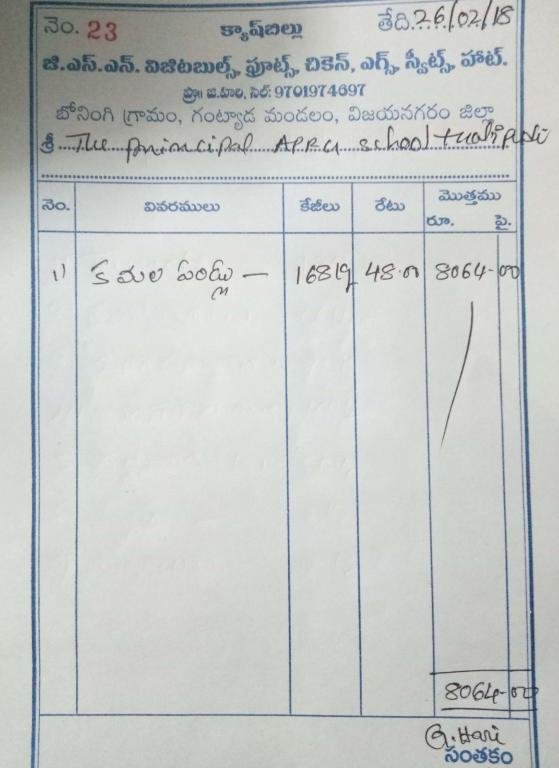 నెం. 23 క్యాష్‌బిల్లు తేది. 26/02/18
జి.ఎస్.ఎన్. విజిటబుల్స్, ఫ్రూట్స్, చికెన్, ఎగ్స్, స్వీట్స్, హాట్.
ప్రొ॥ జి.హరి, సెల్: 9701974697
బోనింగి గ్రామం, గంట్యాడ మండలం, విజయనగరం జిల్లా
శ్రీ The principal APRG school
నెం. వివరములు కేజీలు రేటు మొత్తము
రూ. పై.
1) కమల పండ్లు — 168 kg 48.00 8064-00
8064-00
G. Hari
సంతకం